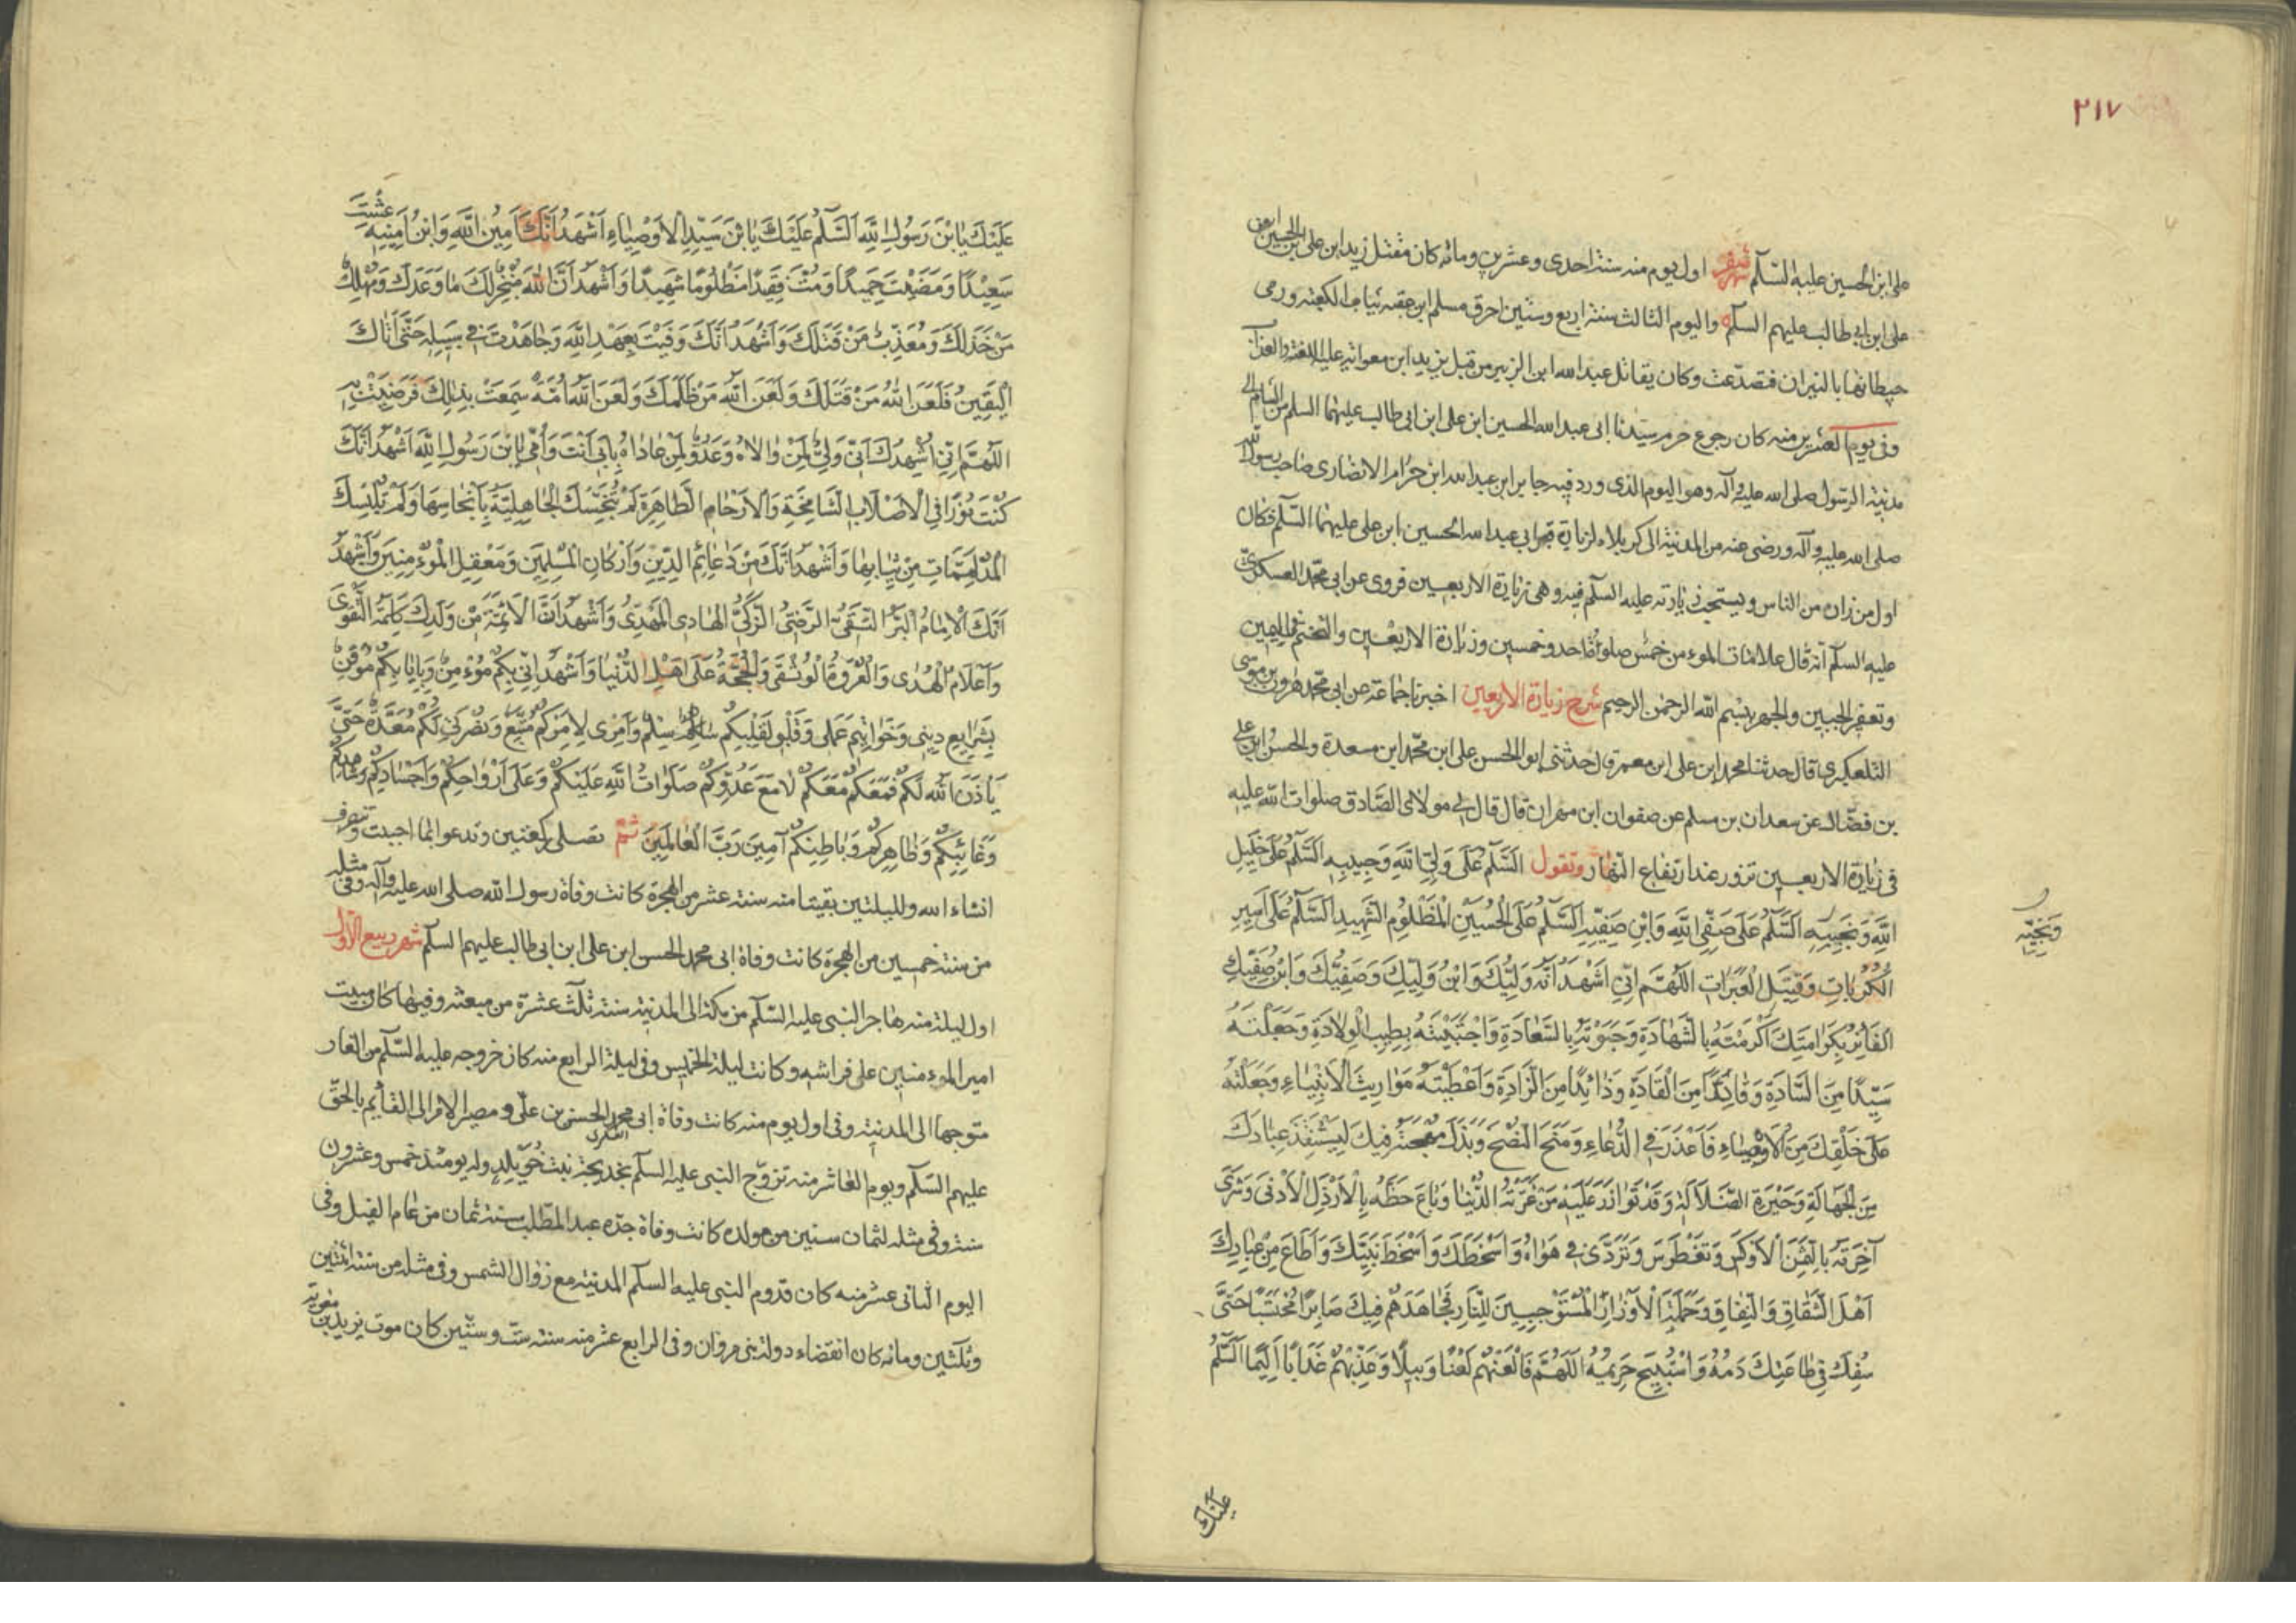 ٢١٧
على ابن الحسين عليه السّلام شهر صفر اول يوم منه سنة احدى وعشرين ومائه كان مقتل زيد ابن على بن الحسين بن
على ابن ابى طالب عليهم السلام واليوم الثالث سنة اربع وستين احرق مسلم ابن عقبه ثياب الكعبة ورمى
حيطانها بالنيران فتصدّعت وكان يقاتل عبدالله ابن الزبير من قبل يزيد ابن معوية عليه اللعنة والعذاب
وفى يوم العشرين منه كان رجوع حرم سيّدنا ابى عبدالله الحسين ابن على ابن ابى طالب عليهما السلم من الشام الى
مدينة الرسول صلى الله عليه وآله وهو اليوم الذى ورد فيه جابر ابن عبدالله ابن حزام الانصارى صاحب رسول الله
صلى الله عليه وآله ورضى عنه من المدينة الى كربلاء لزيارة قبر ابى عبدالله الحسين ابن على عليهما السّلم فكان
اول من زاره من الناس ويستحب زيارته عليه السلم فيه وهى زيارة الاربعين فروى عن ابى محمّد العسكرىّ
عليه السلم انّه قال علامات الموءمن خمس صلوة احد وخمسين وزيارة الاربعين والتختم فى اليمين
وتعفير الجبين والجهر ببسم الله الرحمن الرحيم شرح زيارة الاربعين اخبرنا جماعة عن ابى محمّد هرون بن موسى
التلعكبرى قال حدثنا محمد ابن على ابن معمر قال حدثنى ابو الحسن على ابن محمّد ابن مسعدة والحسن ابن على
بن فضّال عن سعدان بن مسلم عن صفوان ابن مهران قال قال لى مولاى الصّادق صلوات الله عليه
فى زيارة الاربعين تزور عند ارتفاع النّهار وتقول اَلسَّلَمُ عَلَى وَلِىِّ اللهِ وَحَبِيبِهِ اَلسَّلَمُ عَلَى خَلِيلِ
اللهِ وَنَجِيبِهِ اَلسَّلَمُ عَلَى صَفِىِّ اللهِ وَابْنِ صَفِيِّهِ اَلسَّلَمُ عَلَى الْحُسَيْنِ الْمَظْلُومِ الشَّهِيدِ اَلسَّلَمُ عَلَى اَسِيرِ
وَنَجِيِّه
الْكُرُبَاتِ وَقَتِيلِ الْعَبَرَاتِ اَللّهُمَّ اِنِّى اَشْهَدُ اَنَّهُ وَلِيُّكَ وَابْنُ وَلِيِّكَ وَصَفِيُّكَ وَابْنُ صَفِيِّكَ
الْفَائِزُ بِكَرَامَتِكَ اَكْرَمْتَهُ بِالشَّهَادَةِ وَحَبَوْتَهُ بِالسَّعَادَةِ وَاجْتَبَيْتَهُ بِطِيبِ الْوِلَادَةِ وَجَعَلْتَهُ
سَيِّدًا مِنَ السَّادَةِ وَقَائِدًا مِنَ الْقَادَةِ وَذَائِدًا مِنَ الذَّادَةِ وَاَعْطَيْتَهُ مَوَارِيثَ الْاَنْبِيَاءِ وَجَعَلْتَهُ
عَلَى خَلْقِكَ مِنَ الْاَوْصِيَاءِ فَاَعْذَرَ فِى الدُّعَاءِ وَمَنَحَ النُّصْحَ وَبَذَلَ مُهْجَتَهُ فِيكَ لِيَسْتَنْقِذَ عِبَادَكَ
مِنَ الْجَهَالَةِ وَحَيْرَةِ الضَّلَالَةِ وَقَدْ تَوَازَرَ عَلَيْهِ مَنْ غَرَّتْهُ الدُّنْيَا وَبَاعَ حَظَّهُ بِالْاَرْذَلِ الْاَدْنَى وَشَرَى
آخِرَتَهُ بِالثَّمَنِ الْاَوْكَسِ وَتَغَطْرَسَ وَتَرَدَّى فِى هَوَاهُ وَاَسْخَطَكَ وَاَسْخَطَ نَبِيَّكَ وَاَطَاعَ مِنْ عِبَادِكَ
اَهْلَ الشَّقَاقِ وَالنِّفَاقِ وَحَمَلَةَ الْاَوْزَارِ الْمُسْتَوْجِبِينَ لِلنَّارِ فَجَاهَدَهُمْ فِيكَ صَابِرًا مُحْتَسِبًا حَتَّى
سُفِكَ فِى طَاعَتِكَ دَمُهُ وَاسْتُبِيحَ حَرِيمُهُ اَللّهُمَّ فَالْعَنْهُمْ لَعْنًا وَبِيلًا وَعَذِّبْهُمْ عَذَابًا اَلِيمًا اَلسَّلَمُ
عَلَيْكَ
عَلَيْكَ يَابْنَ رَسُولِ اللهِ اَلسَّلَمُ عَلَيْكَ يَابْنَ سَيِّدِ الْاَوْصِيَاءِ اَشْهَدُ اَنَّكَ اَمِينُ اللهِ وَابْنُ اَمِينِهِ عِشْتَ
سَعِيْدًا وَمَضَيْتَ حَمِيدًا وَمُتَّ فَقِيدًا مَظْلُومًا شَهِيدًا وَاَشْهَدُ اَنَّ اللهَ مُنْجِزٌ لَكَ مَا وَعَدَكَ وَمُهْلِكٌ
مَنْ خَذَلَكَ وَمُعَذِّبٌ مَنْ قَتَلَكَ وَاَشْهَدُ اَنَّكَ وَفَيْتَ بِعَهْدِ اللهِ وَجَاهَدْتَ فِى سَبِيلِهِ حَتَّى اَتَاكَ
الْيَقِينُ فَلَعَنَ اللهُ مَنْ قَتَلَكَ وَلَعَنَ اللهُ مَنْ ظَلَمَكَ وَلَعَنَ اللهُ اُمَّةً سَمِعَتْ بِذلِكَ فَرَضِيَتْ بِهِ
اَللّهُمَّ اِنِّى اُشْهِدُكَ اَنِّى وَلِىٌّ لِمَنْ وَالَاهُ وَعَدُوٌّ لِمَنْ عَادَاهُ بِاَبِى اَنْتَ وَاُمِّى يَابْنَ رَسُولِ اللهِ اَشْهَدُ اَنَّكَ
كُنْتَ نُورًا فِى الْاَصْلَابِ الشَّامِخَةِ وَالْاَرْحَامِ الطَّاهِرَةِ لَمْ تُنَجِّسْكَ الْجَاهِلِيَّةُ بِاَنْجَاسِهَا وَلَمْ تُلْبِسْكَ
الْمُدْلَهِمَّاتِ مِنْ ثِيَابِهَا وَاَشْهَدُ اَنَّكَ مِنْ دَعَائِمِ الدِّينِ وَاَرْكَانِ الْمُسْلِمِينَ وَمَعْقِلِ الْمُوءْمِنِينَ وَاَشْهَدُ
اَنَّكَ الْاِمَامُ الْبَرُّ التَّقِىُّ الرَّضِىُّ الزَّكِىُّ الْهَادِى الْمَهْدِىُّ وَاَشْهَدُ اَنَّ الْاَئِمَّةَ مِنْ وَلَدِكَ كَلِمَةُ التَّقْوَى
وَاَعْلَامُ الْهُدَى وَالْعُرْوَةُ الْوُثْقَى وَالْحُجَّةُ عَلَى اَهْلِ الدُّنْيَا وَاَشْهَدُ اَنِّى بِكُمْ مُوءْمِنٌ وَبِاِيَابِكُمْ مُوقِنٌ
بِشَرَايِعِ دِينِى وَخَوَاتِيمِ عَمَلِى وَقَلْبِى لِقَلْبِكُمْ سِلْمٌ وَاَمْرِى لِاَمْرِكُمْ مُتَّبِعٌ وَنُصْرَتِى لَكُمْ مُعَدَّةٌ حَتَّى
يَأْذَنَ اللهُ لَكُمْ فَمَعَكُمْ مَعَكُمْ لَا مَعَ عَدُوِّكُمْ صَلَوَاتُ اللهِ عَلَيْكُمْ وَعَلَى اَرْوَاحِكُمْ وَاَجْسَادِكُمْ وَشَاهِدِكُمْ
وَغَائِبِكُمْ وَظَاهِرِكُمْ وَبَاطِنِكُمْ آمِينَ رَبَّ الْعَالَمِينَ ثم تصلى ركعتين وتدعو بما احببت وتنصرف
انشاء الله ولليلتين بقيتا منه سنة عشر من الهجرة كانت وفاة رسول الله صلى الله عليه وآله وفى مثله
من سنة خمسين من الهجرة كانت وفاة ابى محمد الحسن ابن على ابن ابى طالب عليهم السلم شهر ربيع الاوّل
اول ليلة منه هاجر النبى عليه السّلم من مكة الى المدينة سنة ثلث عشرة من مبعثه وفيها كان مبيت
امير الموءمنين على فراشه وكانت ليلة الخميس وفى ليلة الرابع منه كان خروجه عليه السّلم من الغار
متوجها الى المدينة وفى اول يوم منه كانت وفاة ابى محمد الحسن بن علىّ العسكرى ومصير الامر الى القائم بالحقّ
عليهم السّلم ويوم العاشر منه تزوّج النبى عليه السلم بخديجة بنت خُوَيلد وله يومئذ خمس وعشرون
سنة وفى مثله لثمان سنين من مولده كانت وفاة جدّه عبد المطّلب سنة ثمان من عام الفيل وفى
اليوم الثانى عشر منه كان قدوم النبى عليه السلم المدينة مع زوال الشمس وفى مثله من سنة اثنتين
وثلثين ومائة كان انقضاء دولة بنى مروان وفى الرابع عشر منه سنة ستّ وستّين كان موت يزيد بن معوية